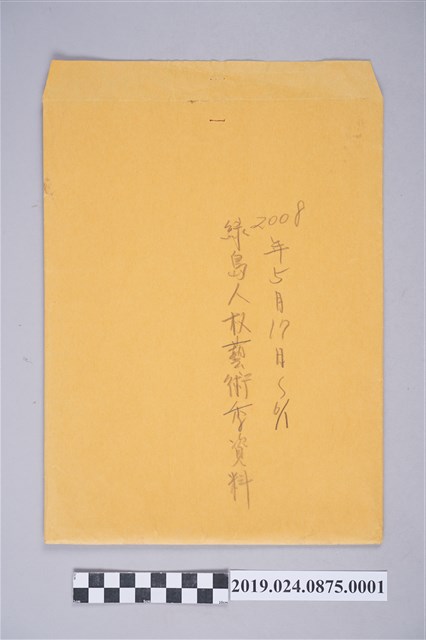 2008年5月17日~6/1
綠島人权藝術季資料
2019.024.0875.0001